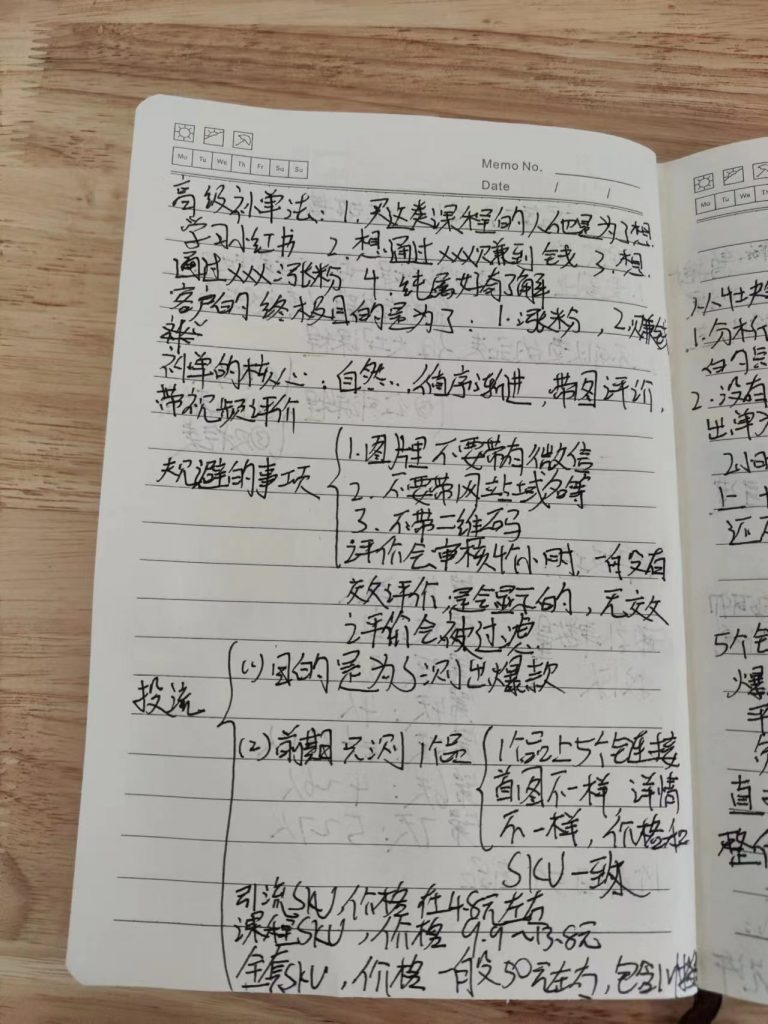 Mo Tu We Th Fr Sa Su
Memo No.
Date / /
高级补单法：1. 买这类课程的人他是为了想
学习小红书 2. 想通过xxx赚到钱 3. 想
通过xxx涨粉 4. 纯属好奇了解
客户的终极目的是为了：1. 涨粉，2. 赚钱
补单的核心：自然…，循序渐进，带图评价，
带视频评价
规避的事项
1. 图片里不要带有微信
2. 不要带网站域名等
3. 不带二维码
评价会审核4个小时，一般有
效评价是会显示的，无效
评价会被过滤
投流
(1) 目的是为了测出爆款
(2) 前期只测1个品
1个品上5个链接
首图不一样 详情
不一样，价格和
SKU一致
引流SKU，价格在4.8元左右
课程SKU，价格9.9~13.8元
全套SKU，价格一般50元左右，包含
Mo Tu We Th
1. 分析
2. 没有
出单
2小时
还
5个链
爆
整个